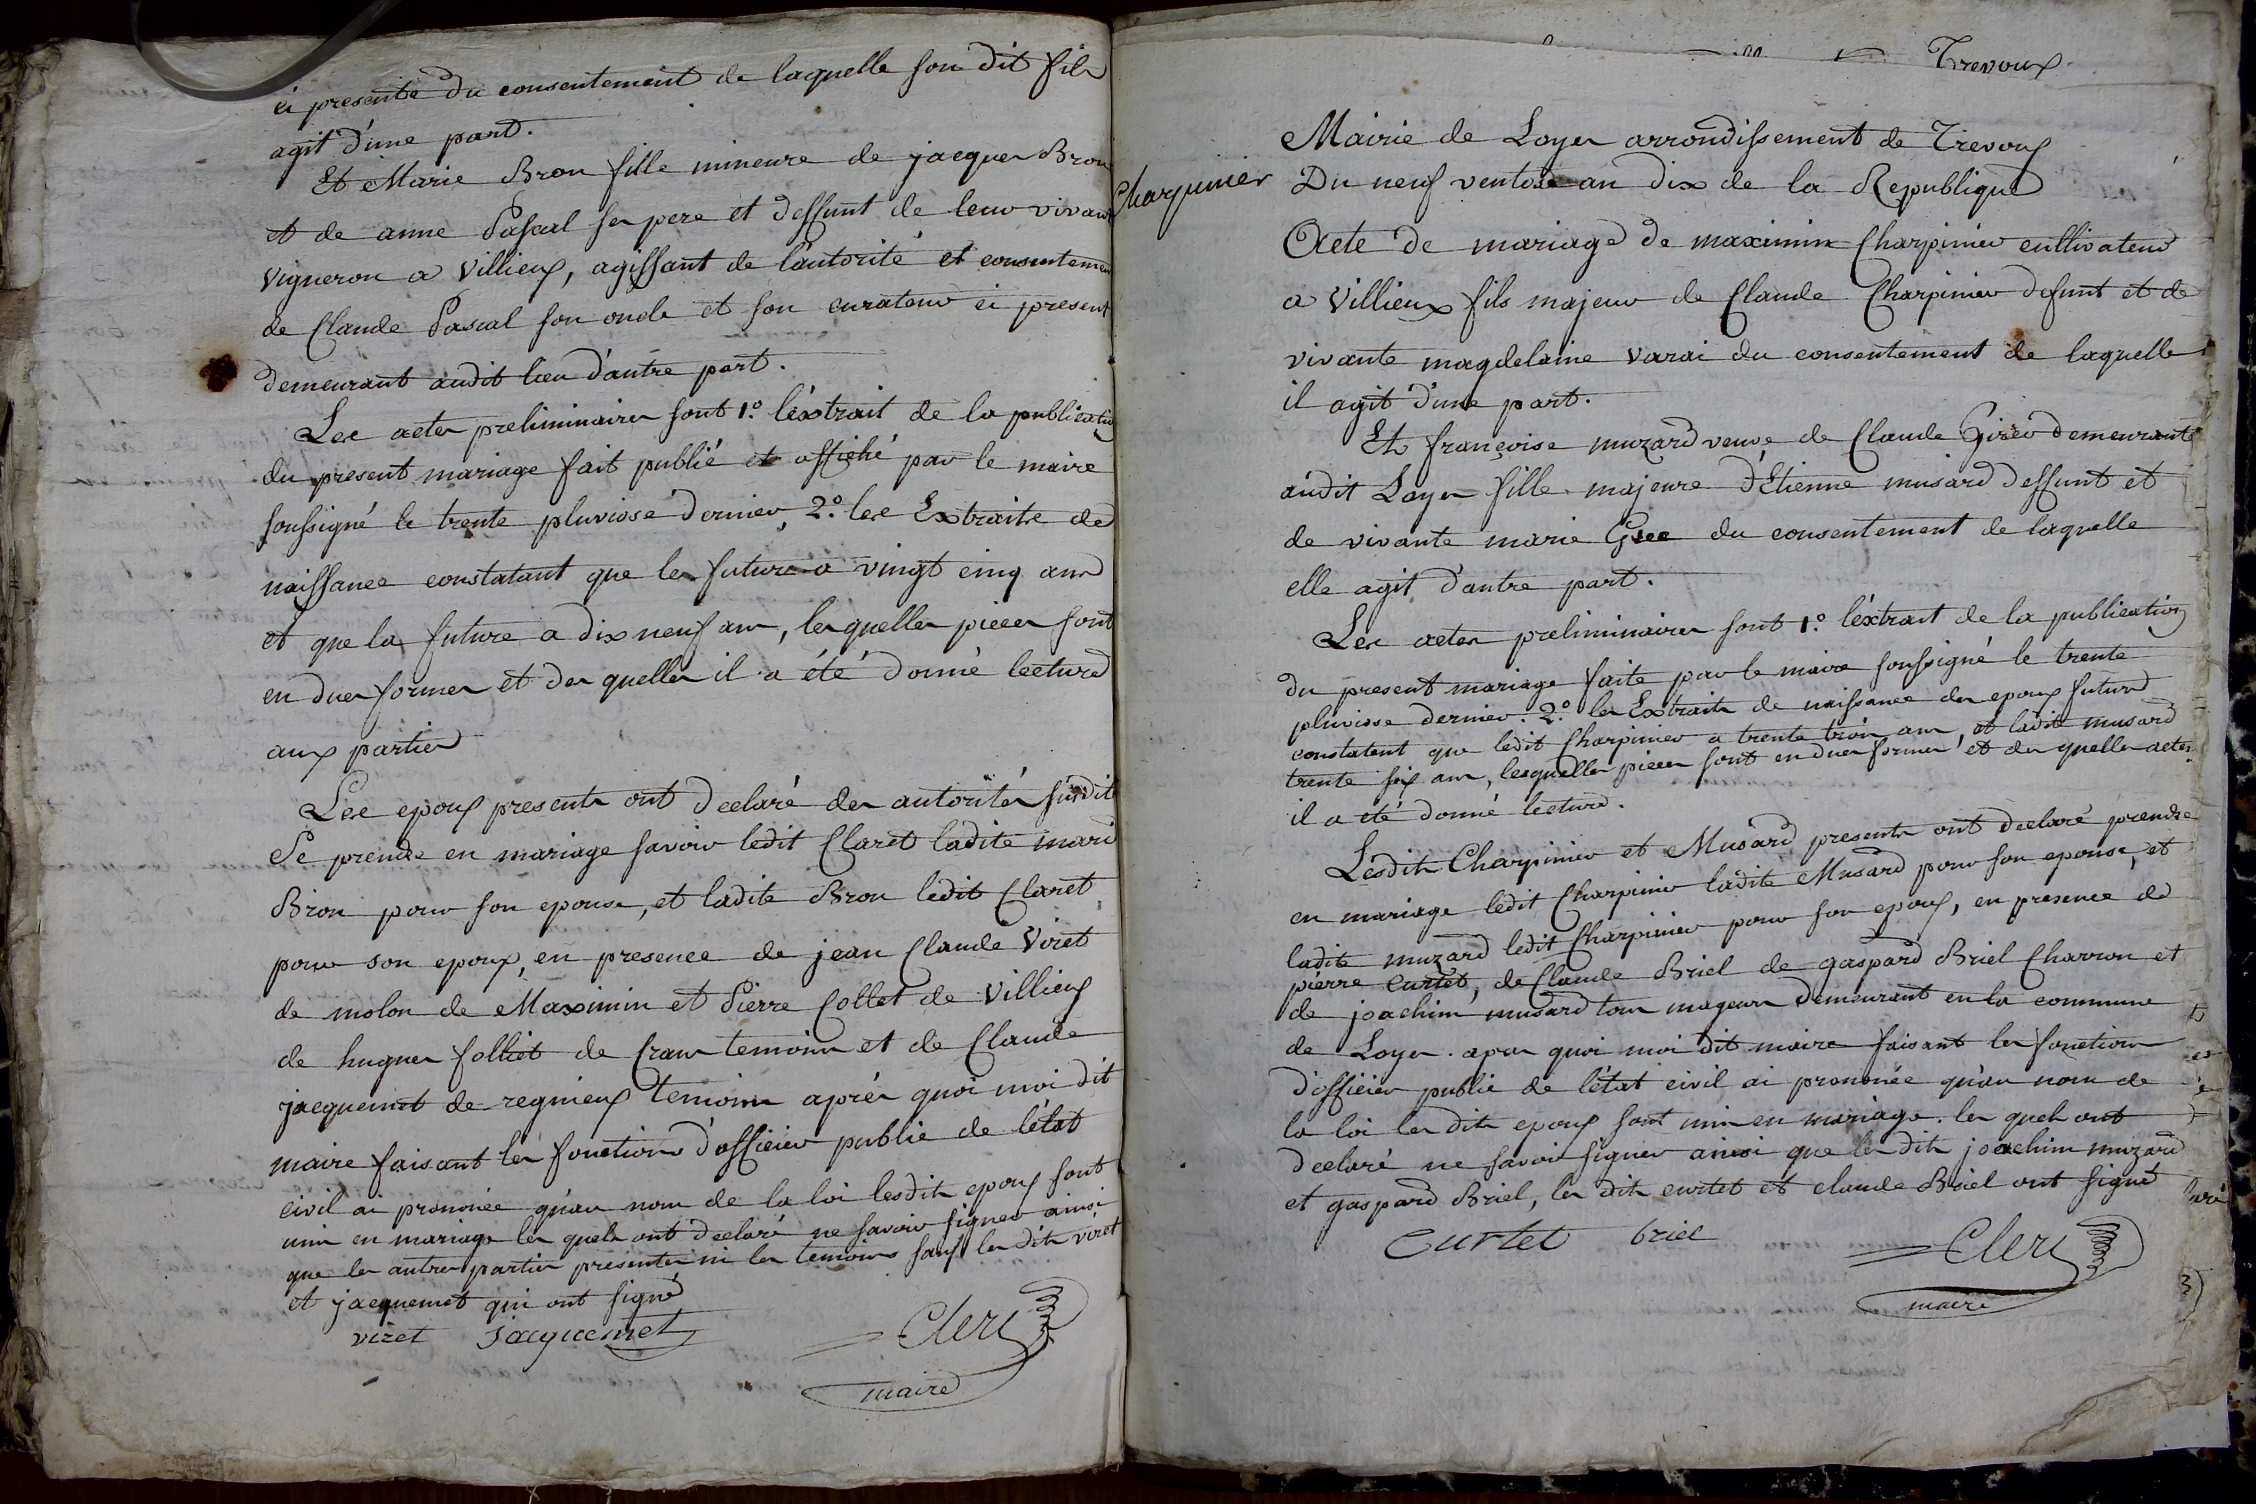 ci presente du consentement de laquelle son dit fils
agit d'une part.
Et Marie Bron fille mineure de jacques Bron
et de anne Pascal ses pere et deffunt de leur vivant
vigneron a Villieux, agissant de l'autorité et consentement
de Claude Pascal son oncle et son curateur ci present
demeurant audit lieu d'autre part.
Les actes preliminaires sont 1.º l'éxtrait de la publication
du present mariage fait publié et affiché par le maire
soussigné le trente pluviose dernier, 2.º les Extraits de
naissance constatant que le futur a vingt cinq ans
et que la future a dix neuf ans, lesquelles pieces sont
en dues formes et des quelles il a été donné lecture
aux parties
Les epoux presents ont declaré des autorités susdites
se prendre en mariage savoir ledit Claret ladite marie
Bron pour son epouse, et ladite Bron ledit Claret
pour son epoux, en presence de jean Claude Viret
de molon de Maximin et Pierre Collet de Villieux
de hugues folliet de Crans temoins et de Claude
jacquemet de regnieux temoins aprés quoi moi dit
maire faisant les fonctions d'officier public de l'état
civil ai prononcé qu'au nom de la loi lesdits epoux sont
unis en mariage les quels ont declaré ne savoir signer ainsi
que les autres parties presentes ni les temoins sauf les dits viret
et jacquemet qui ont signé
viret jacquemet Clerc
maire
Trevoux
Mairie de Loyes arrondissement de Trevoux
Charpinier Du neuf ventose an dix de la Republique
Acte de mariage de maximin Charpinier cultivateur
a Villieux fils majeur de Claude Charpinier defunt et de
vivante magdelaine varai du consentement de laquelle
il agit d'une part.
Et françoise muzard veuve de Claude Girer demeurante
audit Loyes fille majeure d'Etienne musard deffunt et
de vivante marie du consentement de laquelle
elle agit d'autre part.
Les actes preliminaires sont 1.º l'éxtrait de la publication
du present mariage faite par le maire soussigné le trente
pluviose dernier. 2.º les Extraits de naissance des epoux futurs
constatent que ledit Charpinier a trente trois ans, et ladite musard
trente six ans, lesquelles pieces sont en dues formes et des quelles actes
il a été donné lecture.
Lesdits Charpinier et Musard presents ont declaré prendre
en mariage ledit Charpinier ladite Musard pour son epouse, et
ladite muzard ledit Charpinier pour son epoux, en presence de
pierre Curtet, de Claude Briel de gaspard Briel Charron et
de joachim musard tous majeurs demeurant en la commune
de Loyes. apres quoi moi dit maire faisant les fonctions
d'officier public de l'état civil ai prononcé qu'au nom de
la loi les dits epoux sont unis en mariage. les quels ont
declaré ne savoir signer ainsi que les dits joachim muzard
et gaspard Briel, les dits curtet et claude Briel ont signé
Curtet briel Clerc
maire